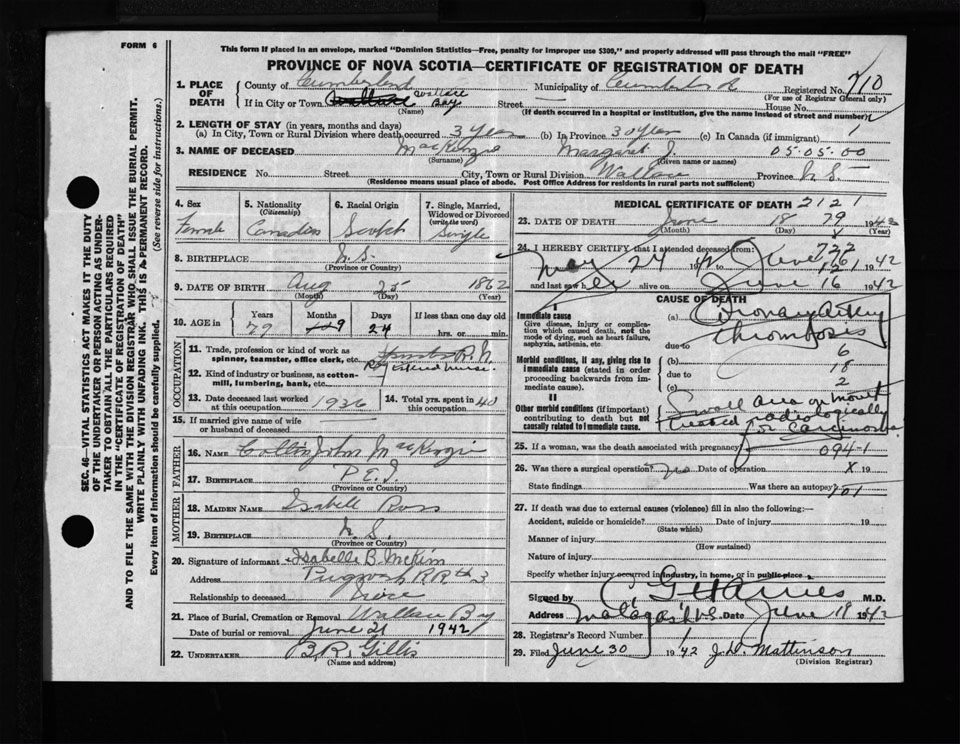 FORM 6
This form if placed in an envelope, marked "Dominion Statistics—Free, penalty for improper use $300," and properly addressed will pass through the mail "FREE"
PROVINCE OF NOVA SCOTIA—CERTIFICATE OF REGISTRATION OF DEATH
SEC. 46—VITAL STATISTICS ACT MAKES IT THE DUTY
OF THE UNDERTAKER OR PERSON ACTING AS UNDER-
TAKER TO OBTAIN ALL THE PARTICULARS REQUIRED
IN THE "CERTIFICATE OF REGISTRATION OF DEATH"
AND TO FILE THE SAME WITH THE DIVISION REGISTRAR WHO SHALL ISSUE THE BURIAL PERMIT.
WRITE PLAINLY WITH UNFADING INK. THIS IS A PERMANENT RECORD.
Every item of information should be carefully supplied. (See reverse side for instructions.)
1. PLACE OF DEATH
County of Cumberland Municipality of Cumberland Registered No. 710
(For use of Registrar General only)
If in City or Town Wallace Bay Street — House No.
(Name) (If death occurred in a hospital or institution, give the name instead of street and number)
2. LENGTH OF STAY (in years, months and days)
(a) In City, Town or Rural Division where death occurred 3 years (b) In Province 30 years (c) In Canada (if immigrant) 1
3. NAME OF DECEASED MacKenzie Margaret J. 05-05-00
(Surname) (Given name or names)
RESIDENCE No. Street City, Town or Rural Division Wallace Province N.S.
(Residence means usual place of abode. Post Office Address for residents in rural parts not sufficient)
4. Sex Female
5. Nationality (Citizenship) Canadian
6. Racial Origin Scotch
7. Single, Married, Widowed or Divorced (write the word) Single
8. BIRTHPLACE N.S.
(Province or Country)
9. DATE OF BIRTH Aug 25 1862
(Month) (Day) (Year)
10. AGE in Years 79 Months 9 Days 24 If less than one day old
hrs. or min.
OCCUPATION
11. Trade, profession or kind of work as spinner, teamster, office clerk, etc. R.N.
12. Kind of industry or business, as cotton-mill, lumbering, bank, etc. Retired Nurse.
13. Date deceased last worked at this occupation 1926
14. Total yrs. spent in this occupation 40
15. If married give name of wife or husband of deceased
FATHER
16. NAME Collin John MacKenzie
17. BIRTHPLACE P.E.I.
(Province or Country)
MOTHER
18. MAIDEN NAME Isabell Ross
19. BIRTHPLACE N.S.
(Province or Country)
20. Signature of informant Isabelle B. McKim
Address Pugwash RR#3
Relationship to deceased Niece
21. Place of Burial, Cremation or Removal Wallace Bay
Date of burial or removal June 21 1942
22. UNDERTAKER B.R. Gillis
(Name and address)
MEDICAL CERTIFICATE OF DEATH 2121
23. DATE OF DEATH June 18 79 1942
(Month) (Day) (Year)
24. I HEREBY CERTIFY that I attended deceased from
May 24 1942 to June 16 1942
and last saw her alive on June 16 1942
CAUSE OF DEATH
I
Immediate cause
Give disease, injury or complication which caused death, not the mode of dying, such as heart failure, asphyxia, asthenia, etc.
(a) Coronary Artery Thrombosis
due to
Morbid conditions, if any, giving rise to immediate cause (stated in order proceeding backwards from immediate cause).
(b) 6
due to 18
(c) 2
II
Other morbid conditions (if important) contributing to death but not causally related to immediate cause.
Small area on mouth treated radiologically for Carcinoma
25. If a woman, was the death associated with pregnancy? 094-1
26. Was there a surgical operation? no Date of operation X 19
State findings Was there an autopsy?
27. If death was due to external causes (violence) fill in also the following:—
Accident, suicide or homicide? Date of injury 19
(State which)
Manner of injury
(How sustained)
Nature of injury
Specify whether injury occurred in industry, in home, or in public place
Signed by M.D.
Address Malagash N.S. Date June 18 1942
28. Registrar's Record Number 1
29. Filed June 30 1942 J.D. Mattinson
(Division Registrar)